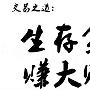 交易之道：
生存
赚大